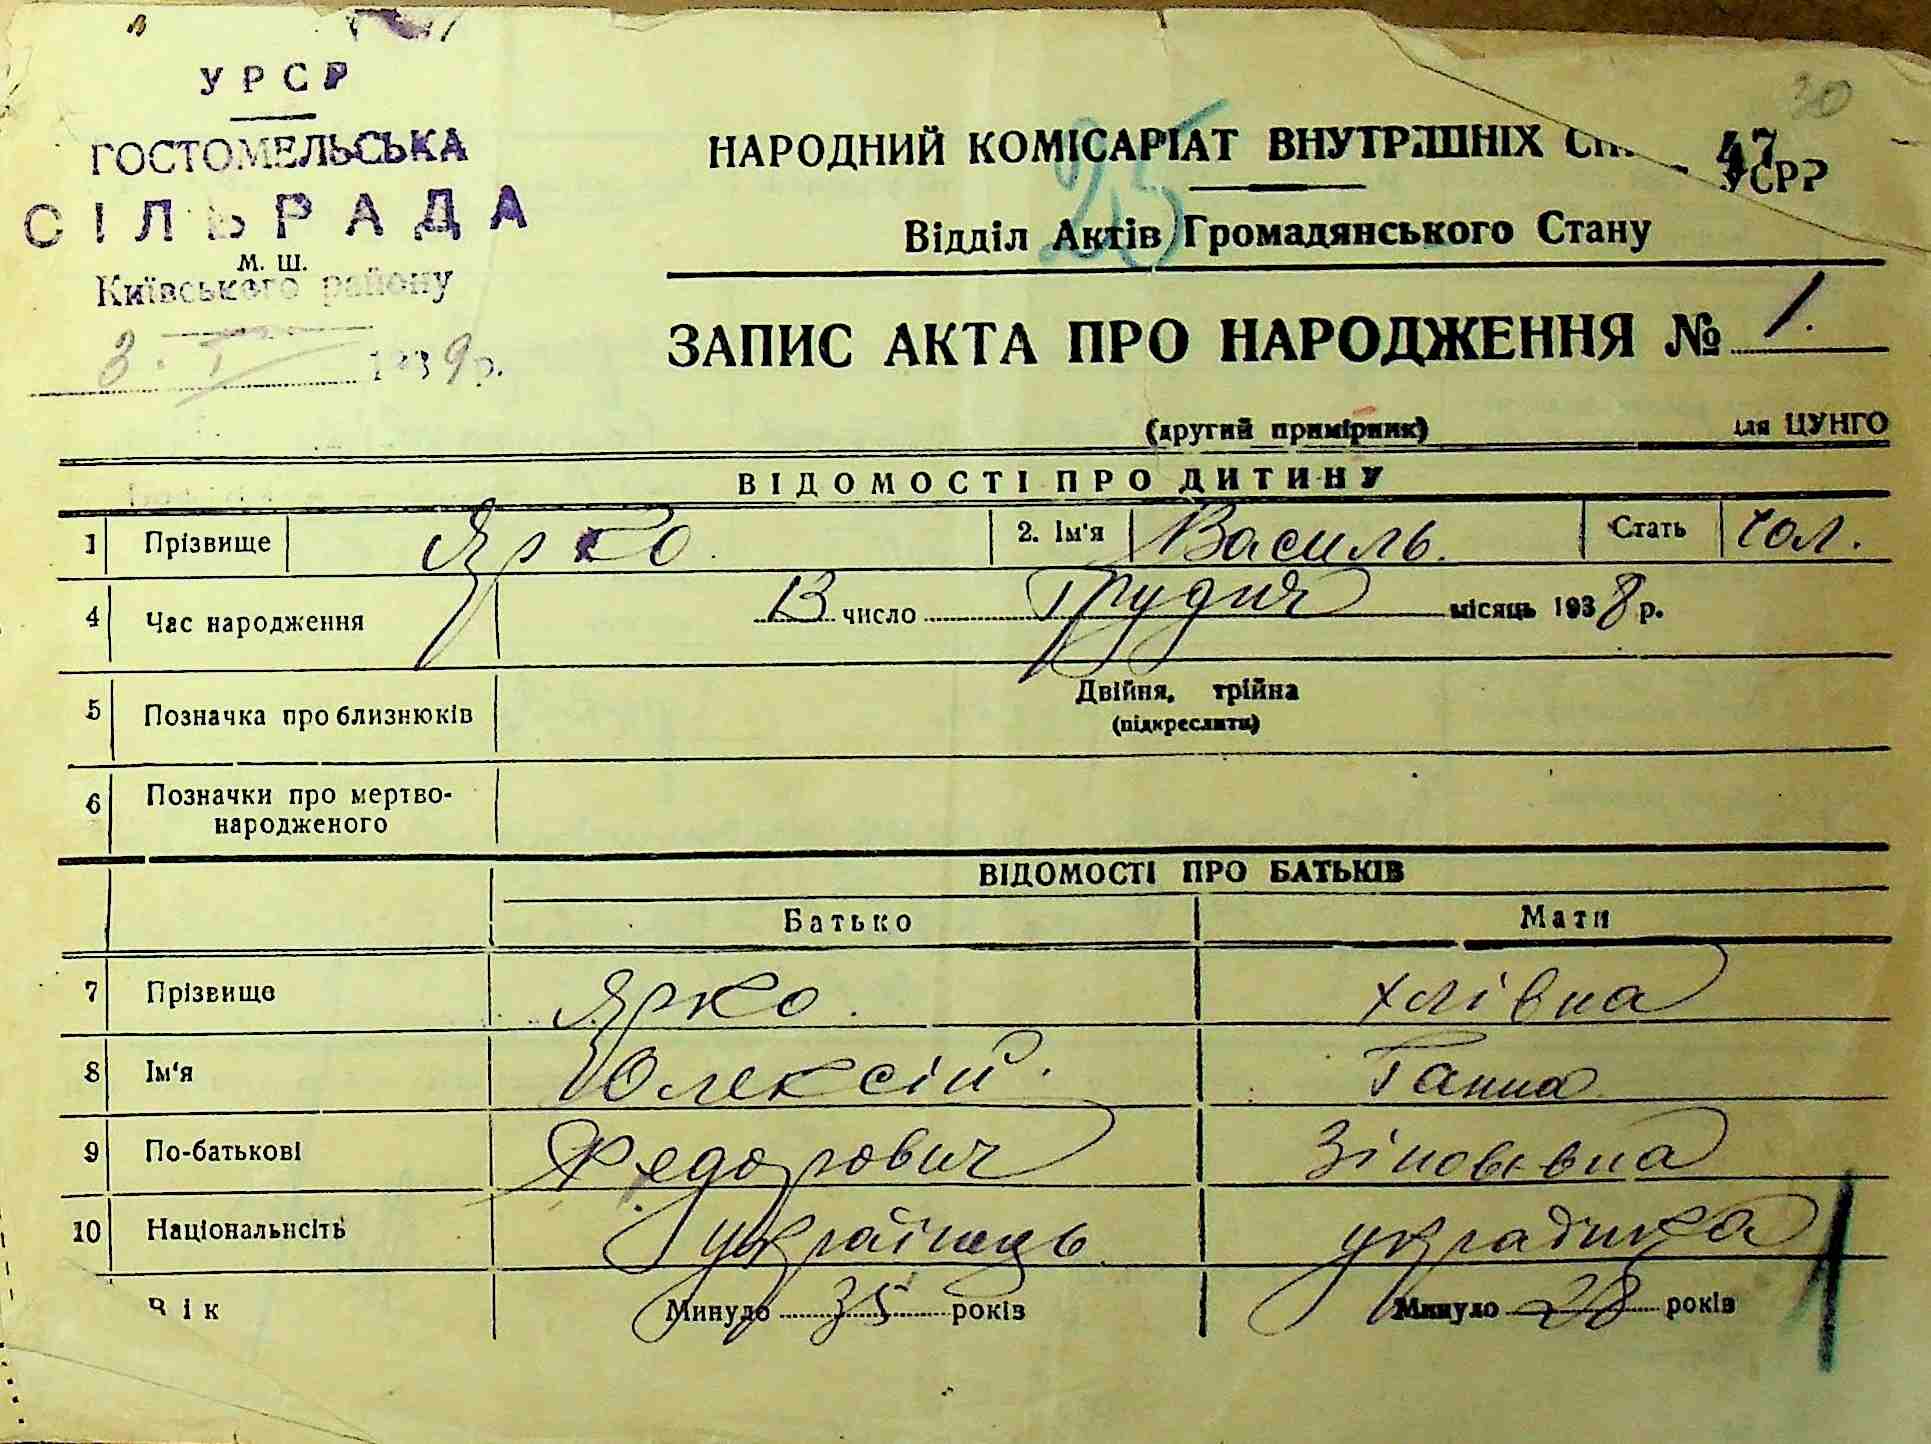 30
УРСР
ГОСТОМЕЛЬСЬКА
СІЛЬРАДА
м. ш.
Київського району
3. I 1939 р.
47
НАРОДНИЙ КОМІСАРІАТ ВНУТРІШНІХ УСРР
25
Відділ Актів Громадянського Стану
ЗАПИС АКТА ПРО НАРОДЖЕННЯ № 1.
(другий примірник) для ЦУНГО
ВІДОМОСТІ ПРО ДИТИНУ
1 Прізвище Ярко. 2. Ім'я Василь. Стать чол.
4 Час народження 13 число Грудня місяць 1938 р.
5 Позначка про близнюків Двійня, трійна
(підкреслити)
6 Позначки про мертво-
народженого
ВІДОМОСТІ ПРО БАТЬКІВ
Батько Мати
7 Прізвище Ярко. Хлівна
8 Ім'я Олексій. Ганна
9 По-батькові Федорович Зіновьвна
10 Національнсіть українець українка
Вік Минуло 35 років Минуло 28 років